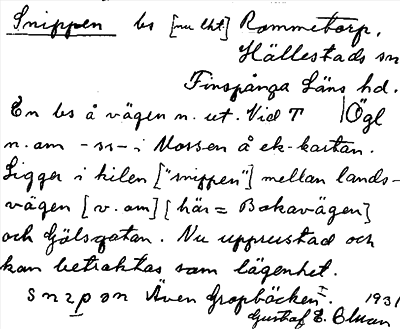 Snippen bs [nu lht] Rommetorp,
Hällestads sn
Finspånga Läns hd.
En bs å vägen n. ut. Vid T Ögl
n. om -ss- i Mossen å ek-kartan.
Ligger i kilen ["snippen"] mellan lands-
vägen [v. om] [här = Bokavägen]
och Gölsgatan. Nu upprustad och
kan betraktas som lägenhet.
snipən Även Gropböcken I. 1931
Gustaf E. Elman